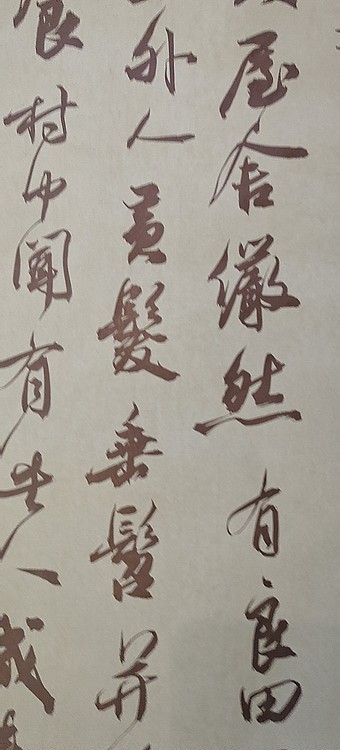 屋舍儼然有良田
外人黃髮垂髫并
村中聞有此人咸